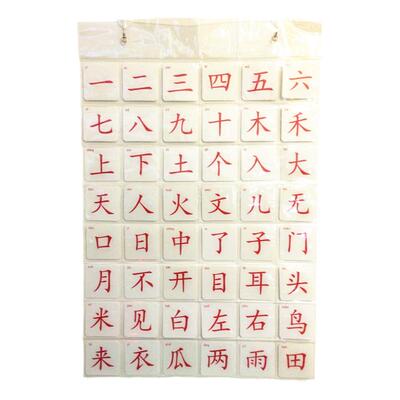 一 二 三 四 五 六
七 八 九 十 木 禾
上 下 土 个 入 大
天 人 火 文 儿 无
口 日 中 了 子 门
月 不 开 目 耳 头
米 见 白 左 右 鸟
来 衣 瓜 两 雨 田